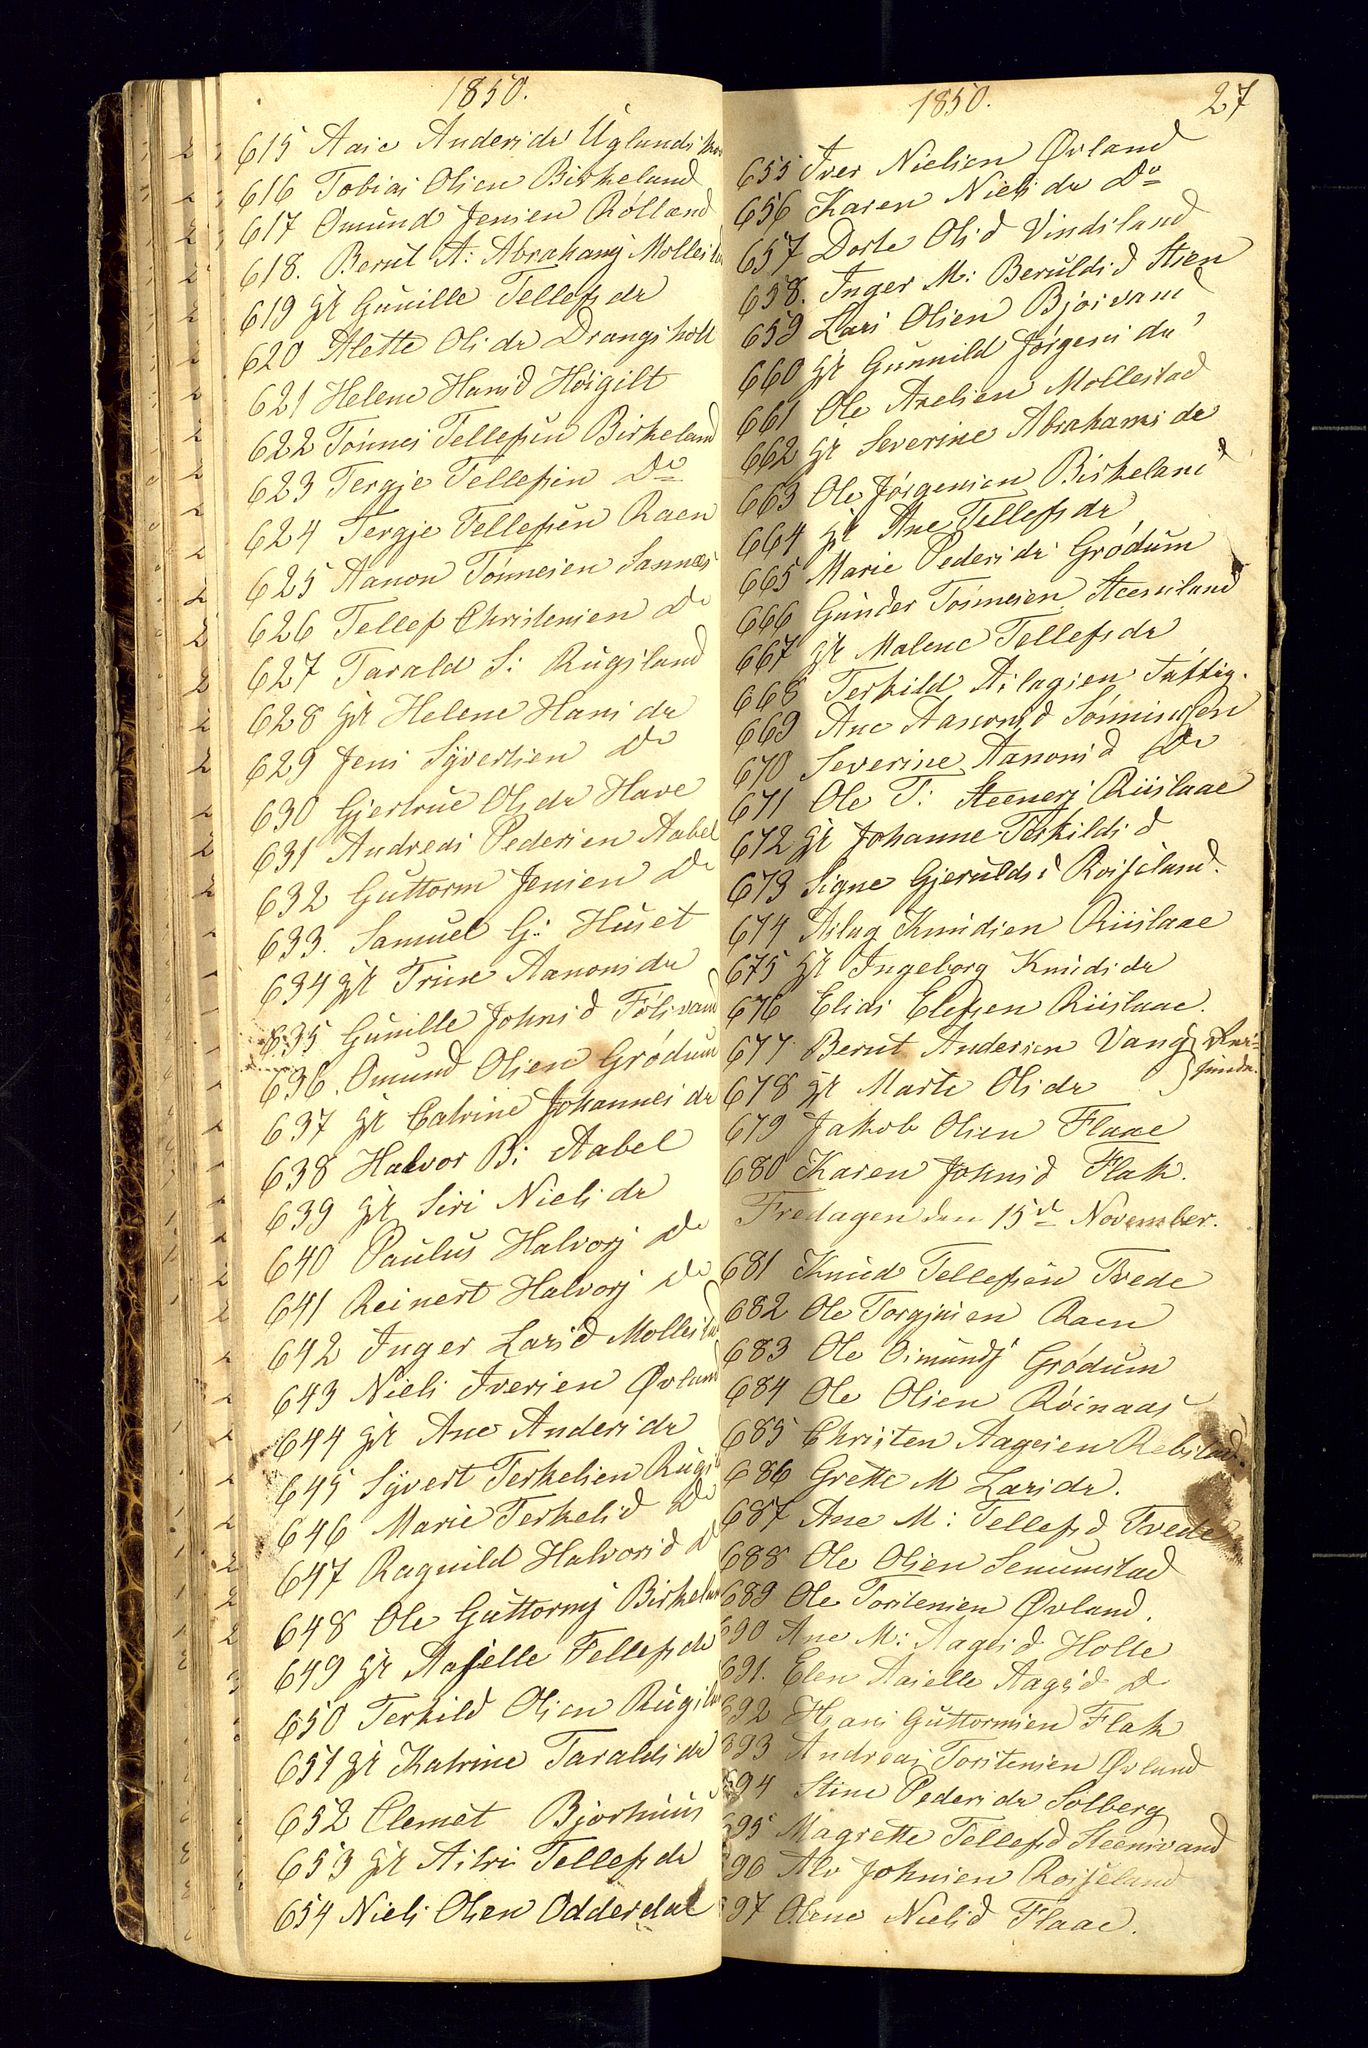 1850.
615 Aase Andersdr Uglands
616 Tobias Olsen Birkeland
617 Omund Jensen Rolland
618. Bernt A: Abrahamsj Mollestad
619 gk Gunille Tellefsdr
620 Alette Olsdr Drangsholt
621 Helene Hansd Høigilt
622 Tønnes Tellefsen Birkeland
623 Tergje Tellefsen Do
624 Tergje Tellefsen Raen
625 Aanon Tønnesen Sannæs
626 Tellef Christensen Do
627 Tarald S: Rugsland
628 gk Helene Hansdr
629 Jens Syvertsen Do
630 Gjertrue Olsdr Have
631 Andreas Pedersen Aabel
632 Guttorm Jensen Do
633. Samuel G: Huset
634 gk Trine Aanonsdr
635 Gunille Johnsd Føls vand
636. Omund Olsen Grødum
637 gk Catrine Johannesdr
638 Halvor B: Aabel
639 gk Siri Nielsdr
640 Paulus Halvorsj Do
641 Reinert Halvorsj Do
642 Inger Larsd Mollestad
643 Niels Iversen Øvland
644 gk Ane Andersdr
645 Syvert Terkelsen Rugsl
646 Marie Terkelsd Do
647 Ragnild Halvorsd D
648 Ole Guttormsj Birkelan
649 gk Aasselle Tellefsdr
650 Terkild Olsen Rugslan
651 gk Katrine Taraldsdr
652 Clemet Bjorhuus
653 gk Silvi Tellefsdr
654 Niels Olsen Odderdal
1850. 27
655 Iver Nielsen Øvland
656 Karen Nielsdr Do
657 Dorte Olsd Vindsland
658. Inger M: Beruldsd Steen
659 Lars Olsen Bjorvand
660 gk Gunnild Jørgensdr
661 Ole Axelsen Mollestad
662 gk Severine Abrahamsdr
663 Ole Jørgensen Birkeland
664 gk Ane Tellefsdr
665 Marie Pedersdr Grødum
666 Gunder Tønnesen Steensland
667 gk Malene Tellefsdr
668 Terkild Aslagsen fattig.
669 Ane Aasconsd Sønningsen
670 Severine Aanonsd Do
671 Ole T: Steenersj Riislaae
672 gk Johanne Terkildsd
673 Signe Gjeruldsd Roiseland.
674 Aslag Knudsen Riislaae
675 gk Ingeborg Knudsdr
676 Elias Elefsen Riislaae.
677 Bernt Andersen Vang
678 gk Marte Olsdr
679 Jakob Olsen Flaae
680 Karen Johnsd Flak.
Fredagen den 15de November.
681 Knud Tellefsen Trede
682 Ole Torgjusen Raen
683 Ole Osmundsj Grødum
684 Ole Olsen Røinaas
685 Christen Aagesen Rebsland.
686 Grette M Larsdr.
687 Ane M: Tellefsd Trede
688 Ole Olsen Senumstad
689 Ole Torstensen Øvland.
690 Ane M: Aagesd Holte
691. Elen Aaselle Aagesd Do
692 Hans Guttormsen Flak
693 Andreas Torstensen Øvland
694 Stine Pedersdr Solberg
695 Magrette Tellefsd Steensvand
696 Alv Johnsen Roiseland
697 Olene Nielsd Flaae.